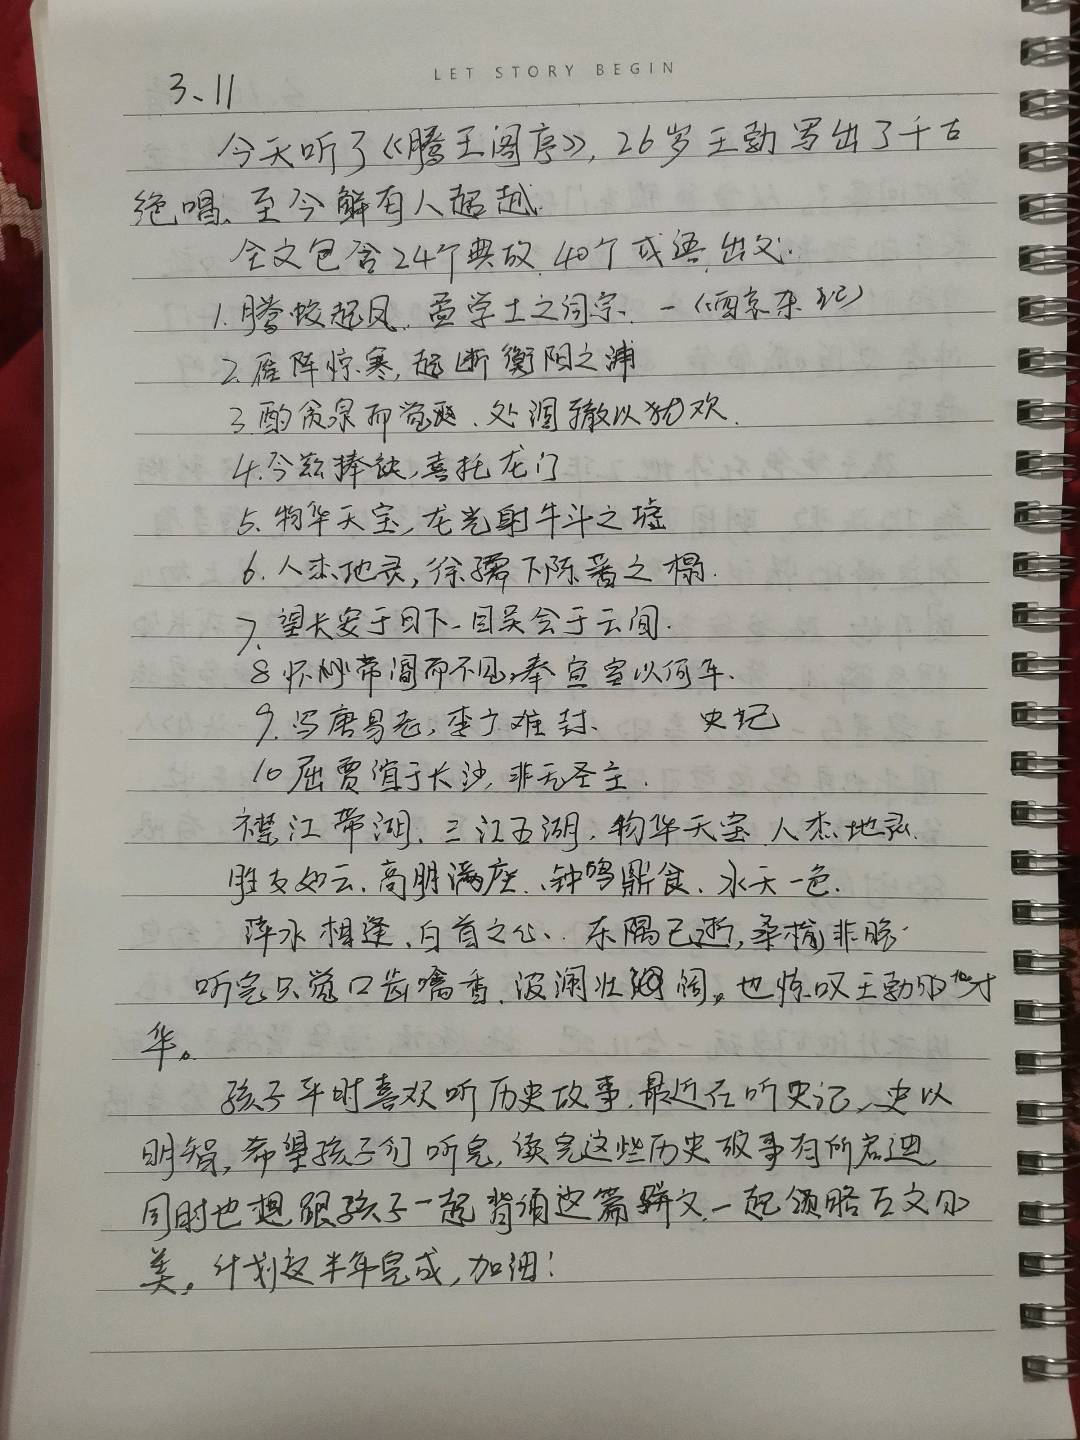 LET STORY BEGIN
3、11
今天听了《腾王阁序》,26岁王勃写出了千古
绝唱、至今鲜有人超越.
全文包含24个典故、40个成语,出文.
1.腾蛟起凤、孟学士之词宗、-《西京杂记》
2.雁阵惊寒,声断衡阳之浦
3.酌贪泉而觉爽、处涸辙以犹欢.
4.今兹捧袂,喜托龙门
5.物华天宝,龙光射牛斗之墟
6.人杰地灵,徐孺下陈蕃之榻.
7.望长安于日下-目吴会于云间.
8怀帝阍而不见,奉宣室以何年.
9.冯唐易老,李广难封、 史记
10屈贾谊于长沙,非无圣主.
襟江带湖、三江五湖,物华天宝、人杰地灵.
胜友如云、高朋满座、钟鸣鼎食、水天一色.
萍水相逢、白首之心、东隅已逝,桑榆非晚.
听完只觉口齿噙香、波澜壮阔。也惊叹王勃的才
华。
孩子平时喜欢听历史故事、最近在听史记、史以
明智,希望孩子们听完,读完这些历史故事有所启迪
同时也想跟孩子一起背诵这篇骈文、一起领略古文的
美。计划这半年完成,加油!